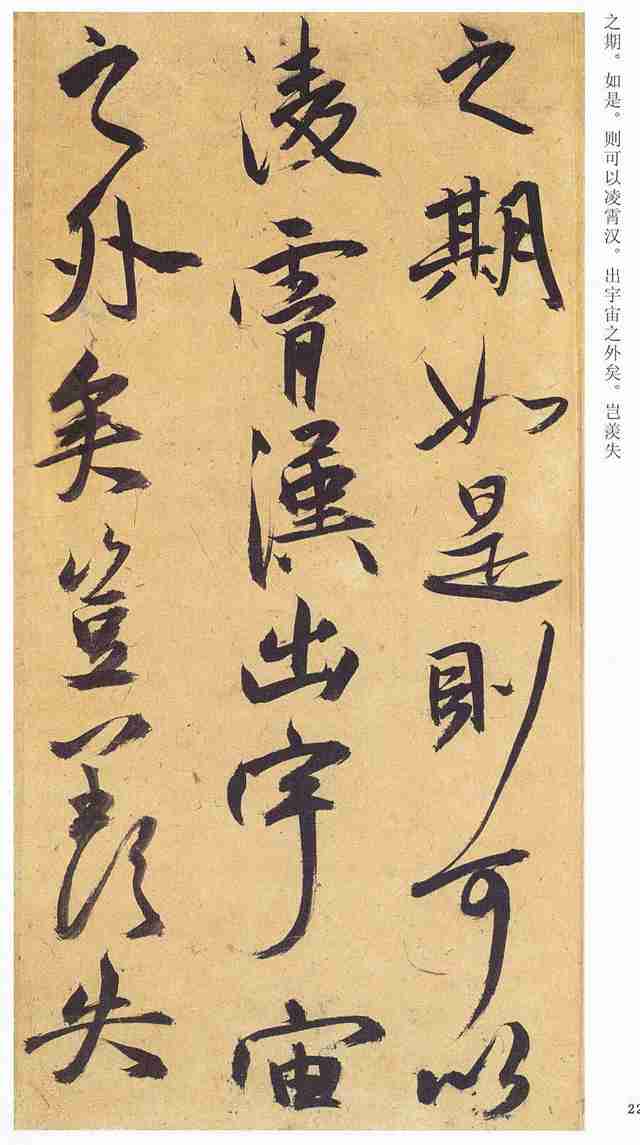 之期如是則可以
淩霄漢出宇宙
之外矣豈羨失
之期。如是。则可以凌霄汉。出宇宙之外矣。岂羡失
22